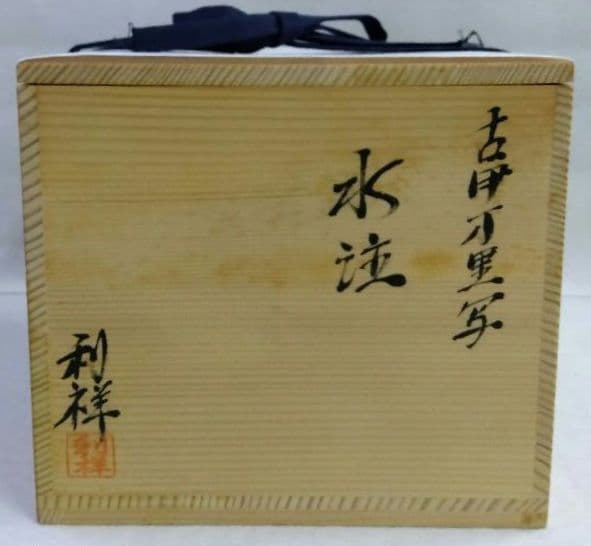 古伊万里写
水注
利祥
利祥